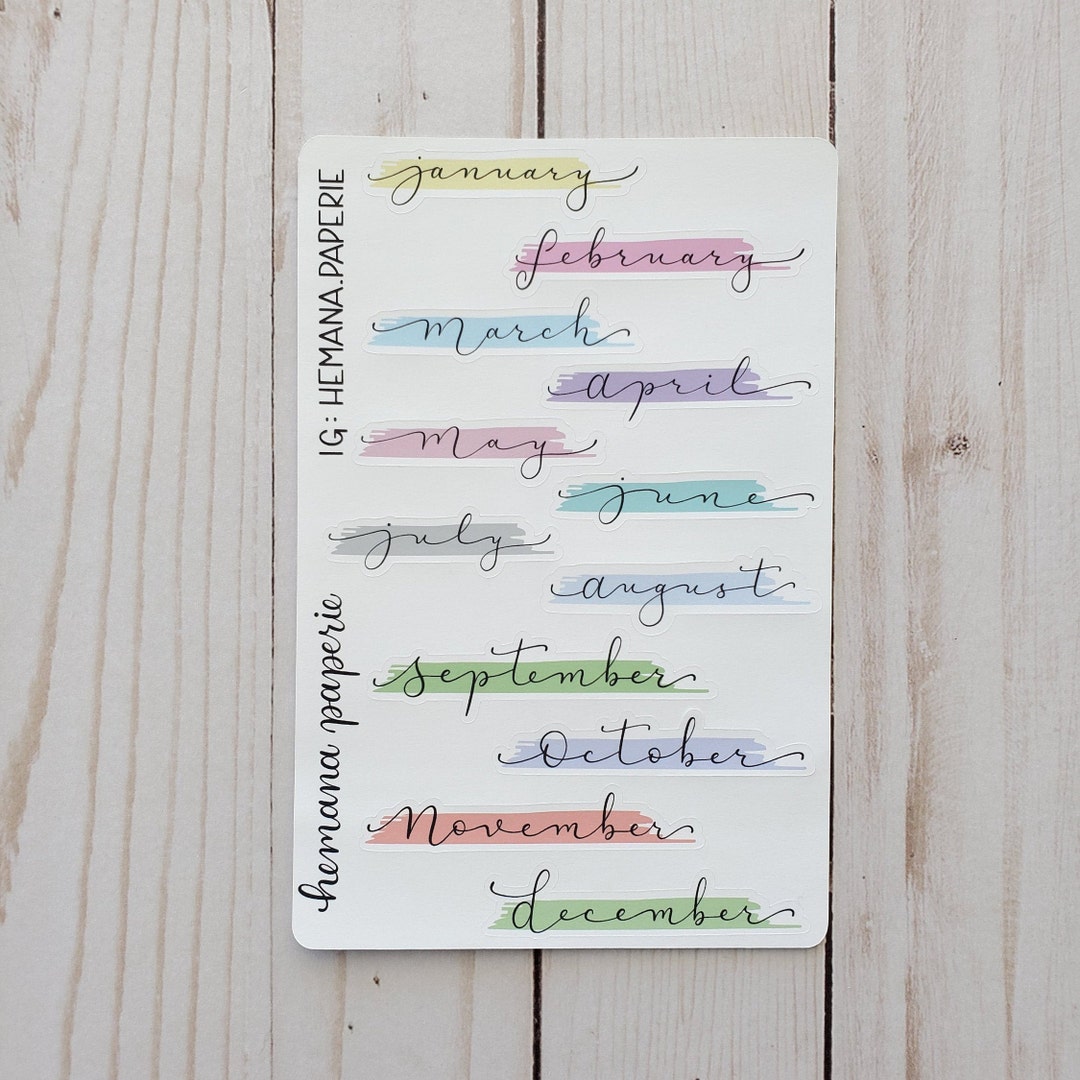 IG: HEMANA.PAPERIE
hemana paperie
january
february
march
april
may
june
july
august
september
October
November
december